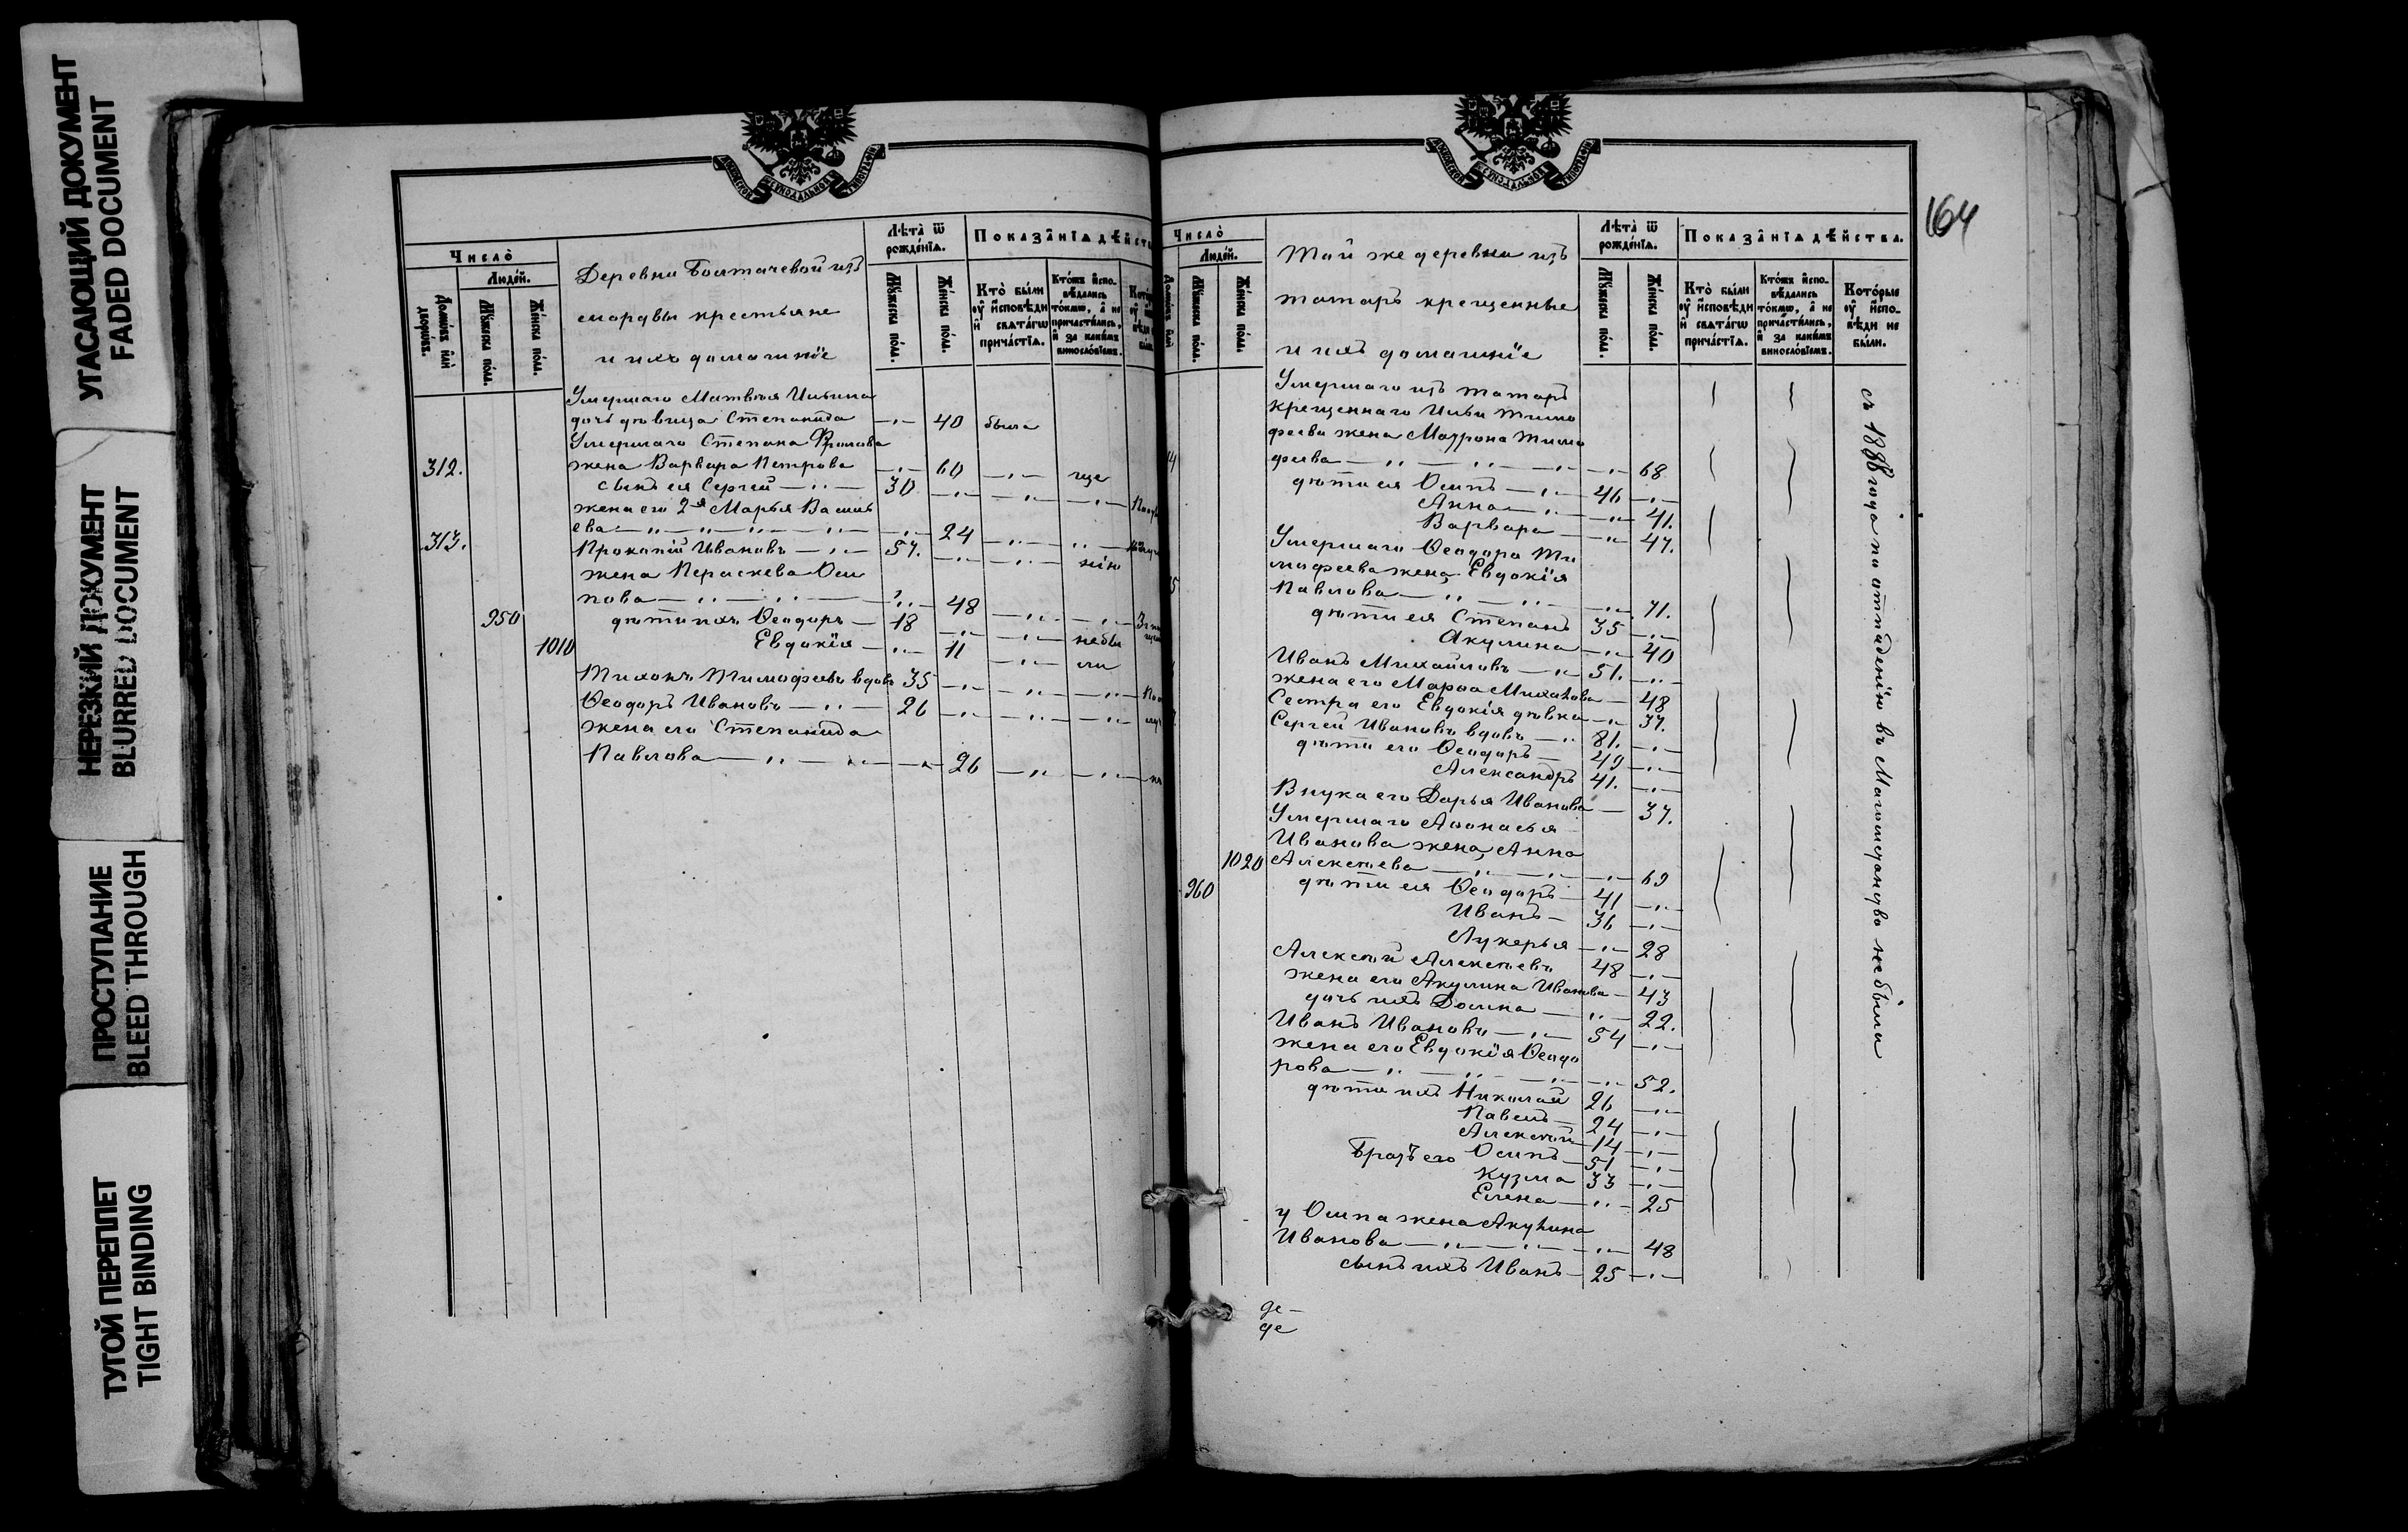 УГАСАЮЩИЙ ДОКУМЕНТ
FADED DOCUMENT
НЕРЕЗКИЙ ДОКУМЕНТ
BLURRED DOCUMENT
ПРОСТУПАНИЕ
BLEED THROUGH
ТУГОЙ ПЕРЕПЛЕТ
TIGHT BINDING
Число̀
Людей.
Домѡвъ или дворѡвъ.
Мꙋжеска полл.
Женска полл.
Деревни Болтачевой изъ
мордвы крестьяне
и ихъ домашнiе
Лѣта ѿ рожденїѧ.
Мꙋжеска полл.
Женска полл.
Показанїѧ дѣйств
Кто были оу исповѣди и свѧтагѡ причастїѧ.
Ктожъ исповѣдались токмѡ, а не причастились, и за какимъ винословїемъ.
Умершаго Матвѣя Ильина
дочь дѣвица Степанида —"— 40 была
Умершаго Степана Фролова
312. жена Варвара Петрова —"— 60 —"—
сынъ ея Сергей —"— 30 —"— —"— —"—
жена его 2я Марья Василь
ева —"— —"— —"— 24 —"—
313. Прокопiй Ивановъ —"— 57. —"— —"—
жена Пераскева Оси
пова —"— —"— —"— 48 —"— —"—
950 дѣти ихъ Ѳеодоръ — 18 —"— —"— небы
1010 Евдокiя —"— 11 —"— ли
Тихонъ Тимофеевъ вдовъ 35 —"— —"— —"—
Ѳеодоръ Ивановъ —"— 26 —"— —"— —"—
жена его Степанида
Павлова —"— —"— 26 —"— —"—
164
Число̀
Людей.
Мꙋжеска полл.
Женска полл.
Той же деревни изъ
татаръ крещенные
и ихъ домашнiе
Лѣта ѿ рожденїѧ.
Мꙋжеска полл.
Женска полл.
Показанїѧ дѣйства.
Кто были оу исповѣди и свѧтагѡ причастїѧ.
Ктожъ исповѣдались токмѡ, а не причастились, и за какимъ винословїемъ.
Которые оу исповѣди не были.
Умершаго изъ татаръ
крещеннаго Ильи Тимо
феева жена Матрона Тимо
феева —"— —"— —"— 68
дѣти ея Осипъ —"— 46 —"—
Анна —"— —"— 41.
Варвара —"— 47.
Умершаго Ѳеодора Ти
мофеева жена Евдокiя
Павлова —"— —"— —"— 71.
дѣти ея Степанъ 35 —"—
Акулина —"— 40
Иванъ Михайловъ —"— 51. —"—
жена его Марѳа Михайлова — 48
Сестра его Евдокiя дѣвка —"— 37.
Сергей Ивановъ вдовъ —"— 81. —"—
дѣти его Ѳеодоръ — 49 —"—
Александръ 41. —"—
Внука его Дарья Иванова — 37.
Умершаго Аѳонасья
Иванова жена, Анна
1020 Алексѣева —"— —"— —"— 69
960 дѣти ея Ѳеодоръ — 41 —"—
Иванъ — 36 —"—
Лукерья —"— 28
Алексѣй Алексѣевъ 48 —"—
жена его Акулина Иванова — 43
дочь ихъ Домна —"— 22.
Иванъ Ивановъ —"— 54 —"—
жена его Евдокiя Ѳеодо
рова —"— —"— —"— 52.
дѣти ихъ Николай 26 —"—
Павелъ 24 —"—
Алексѣй 14 —"—
Братъ его Осипъ — 51 —"—
Кузма 33 —"—
Елена —"— 25
у Осипа жена Акулина
Иванова —"— —"— —"— 48
сынъ ихъ Иванъ — 25 —"—
съ 1888 года по отпаденiю въ Магометанство не была
де —
де